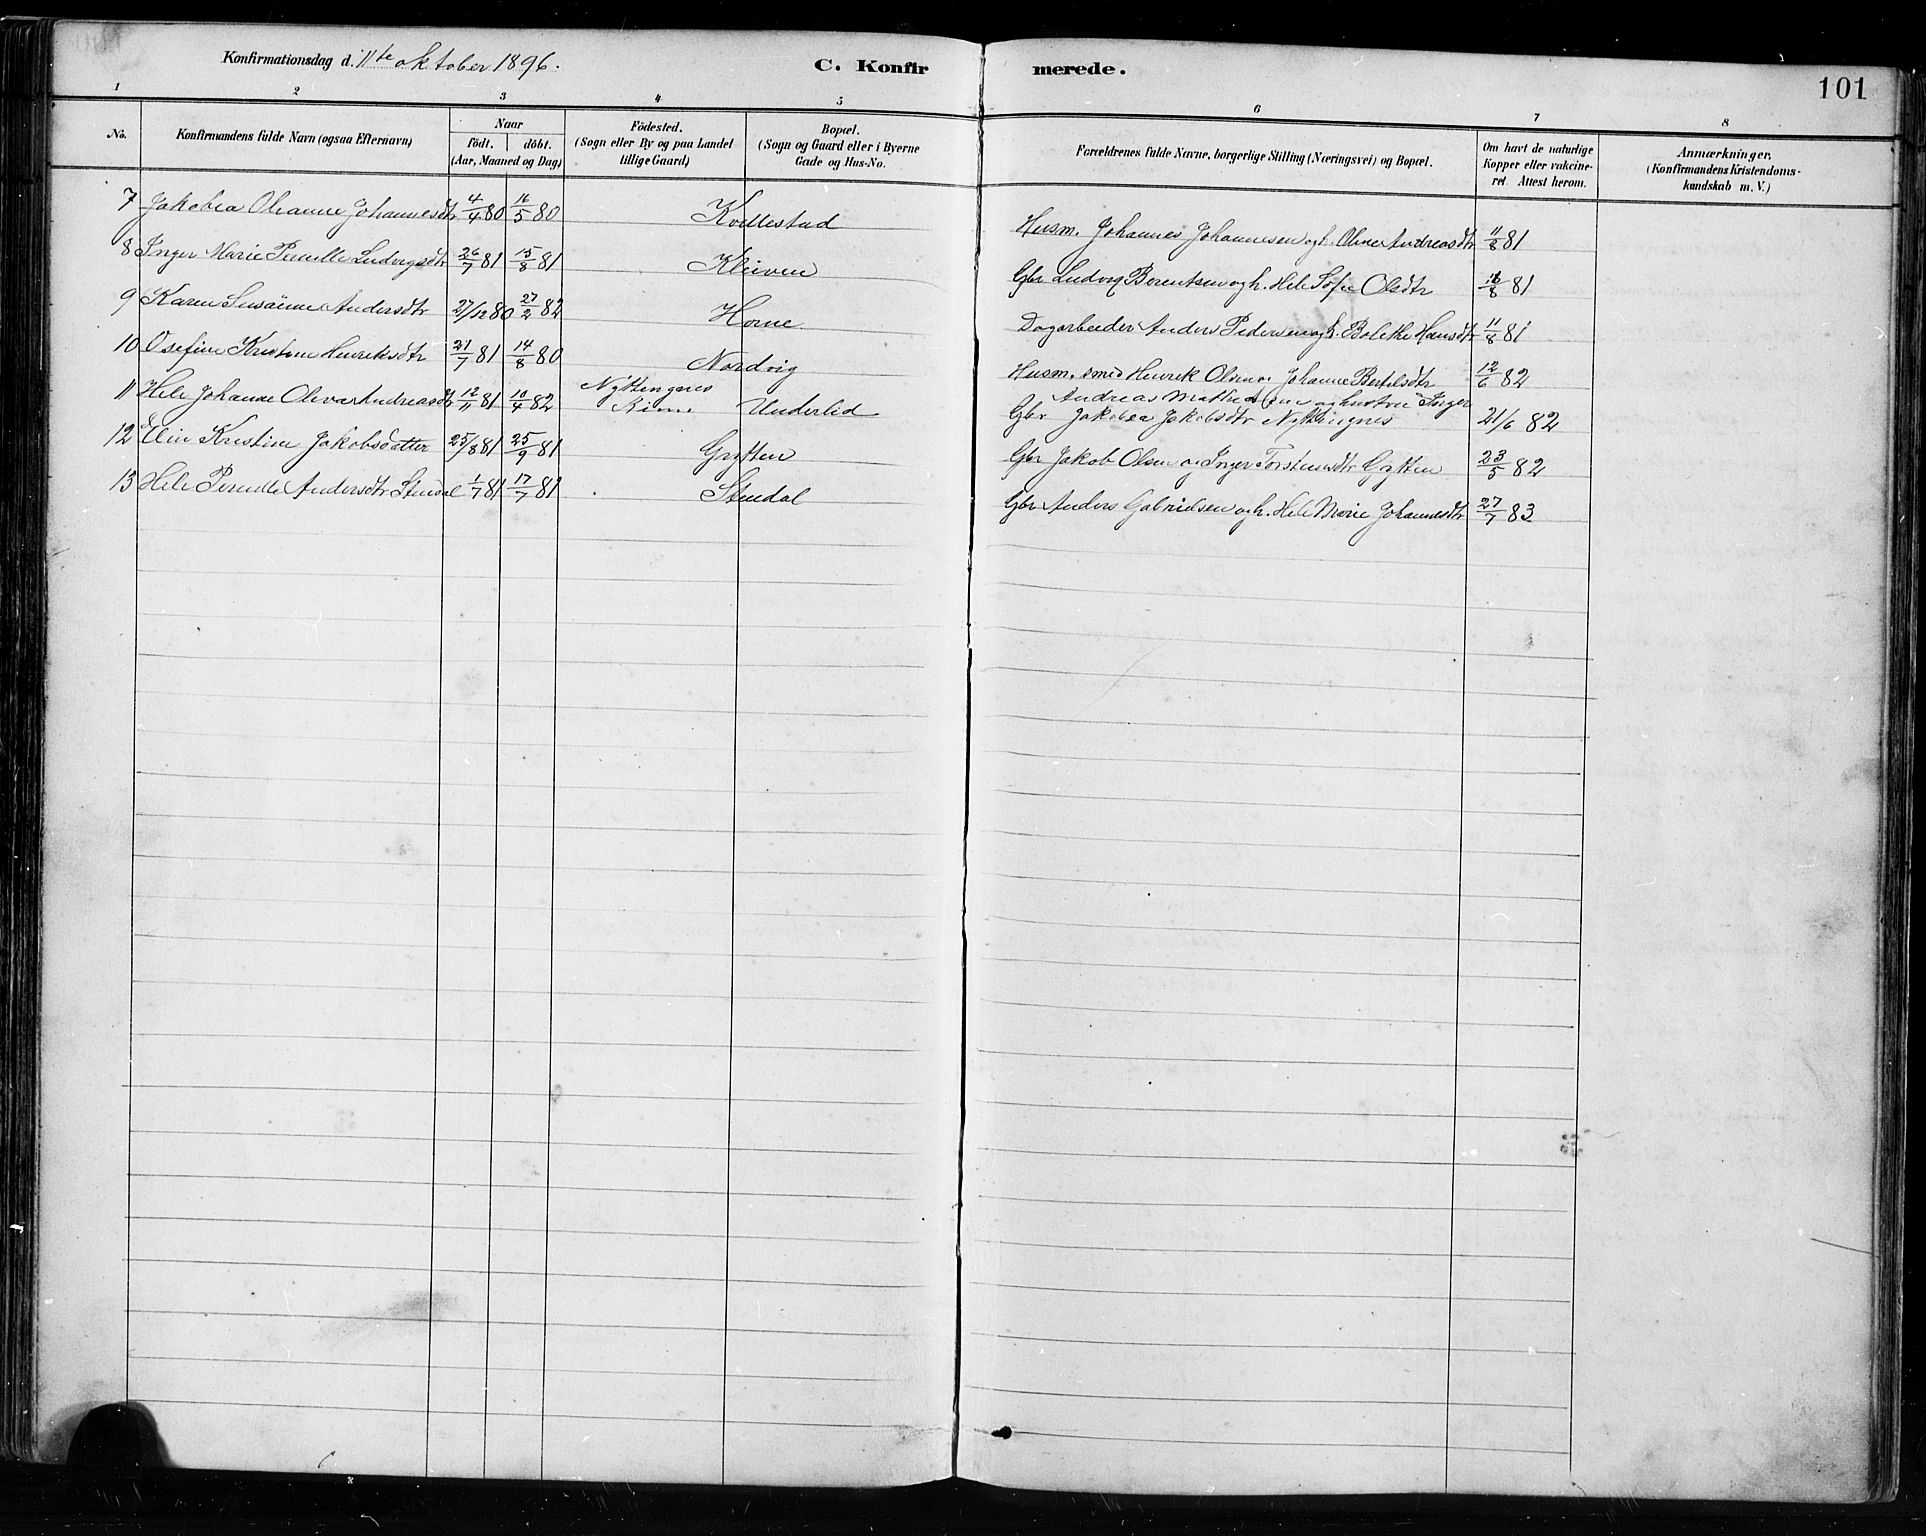 Konfirmationsdag d. 11te oktober 1896.
C. Konfirmerede.
101
1 2 3 4 5 6 7 8
No.
Konfirmandens fulde Navn (ogsaa Efternavn)
Naar
födt. döbt.
(Aar, Maaned og Dag)
Födested.
(Sogn eller By og paa Landet
tillige Gaard)
Bopæl.
(Sogn og Gaard eller i Byerne
Gade og Hus-No.
Forældrenes fulde Navne, borgerlige Stilling (Næringsvei) og Bopæl.
Om havt de naturlige
Kopper eller vakcine-
ret. Attest herom.
Anmærkninger.
(Konfirmandens Kristendoms-
kundskab m. V.)
7 Jakobea Olianne Johannesdtr 4/4 80 16/5 80 Kvellestad Husm. Johannes Johannesen og h. Oline Andreasdtr 11/8 81
8 Inger Marie Pernille Ludvigsdtr 26/7 81 15/8 81 Kleiven Gbr Ludvig Berentsen og h. Hele Sofie Olsdtr 16/8 81
9 Karen Susanne Andersdtr 27/12 80 27/2 82 Horne Dagarbeider Anders Pedersen og h. Bolethe Hansdtr 11/8 81
10 Osefine Kristine Henriksdtr 21/7 81 14/8 80 Nordvig Husm. smed Henrik Olsen og Johanne Bertelsdtr 12/6 82
11 Hele Johanne Oliva Andreasdtr 12/11 81 10/4 82 Nyttingnes Kinn Underlid Andreas Mathias og hustru Inger
Gbr Jakobea Jakobsdtr Nyttingnes 21/6 82
12 Elin Kristine Jakobsdatter 25/8 81 25/9 81 Grytten Gbr Jakob Olsen og Inger Torstensdtr Gytten 23/5 82
13 Hele Pernille Andersdtr Stendal 1/7 81 17/7 81 Stendal Gbr Anders Gabrielsen og h. Hele Marie Johannesdtr 27/7 83